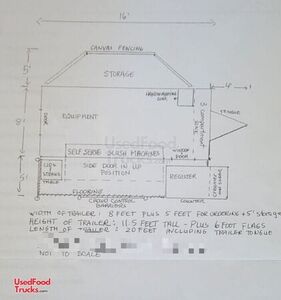 16'
CANVAS FENCING
5'
STORAGE
HANDWASHING
SINK
4'
DOOR
EQUIPMENT
3 Compartment
SINK
TONGUE
8'
UsedFood
Trucks.com
SELF SERVE SLUSH MACHINES
WINDOW
DOOR
SIDE DOOR IN UP
POSITION
REGISTER
5'
TABLE
FLOORING
CROWD CONTROL
BARRIERS
COUNTER
WIDTH OF TRAILER: 8 FEET PLUS 5 FEET FOR ORDERING +5' STORAGE
HEIGHT OF TRAILER: 11.5 FEET TALL - PLUS 6 FOOT FLAGS
LENGTH OF TRAILER: 20 FEET INCLUDING TRAILER TONGUE
NOT TO SCALE
UsedFood
Trucks.com